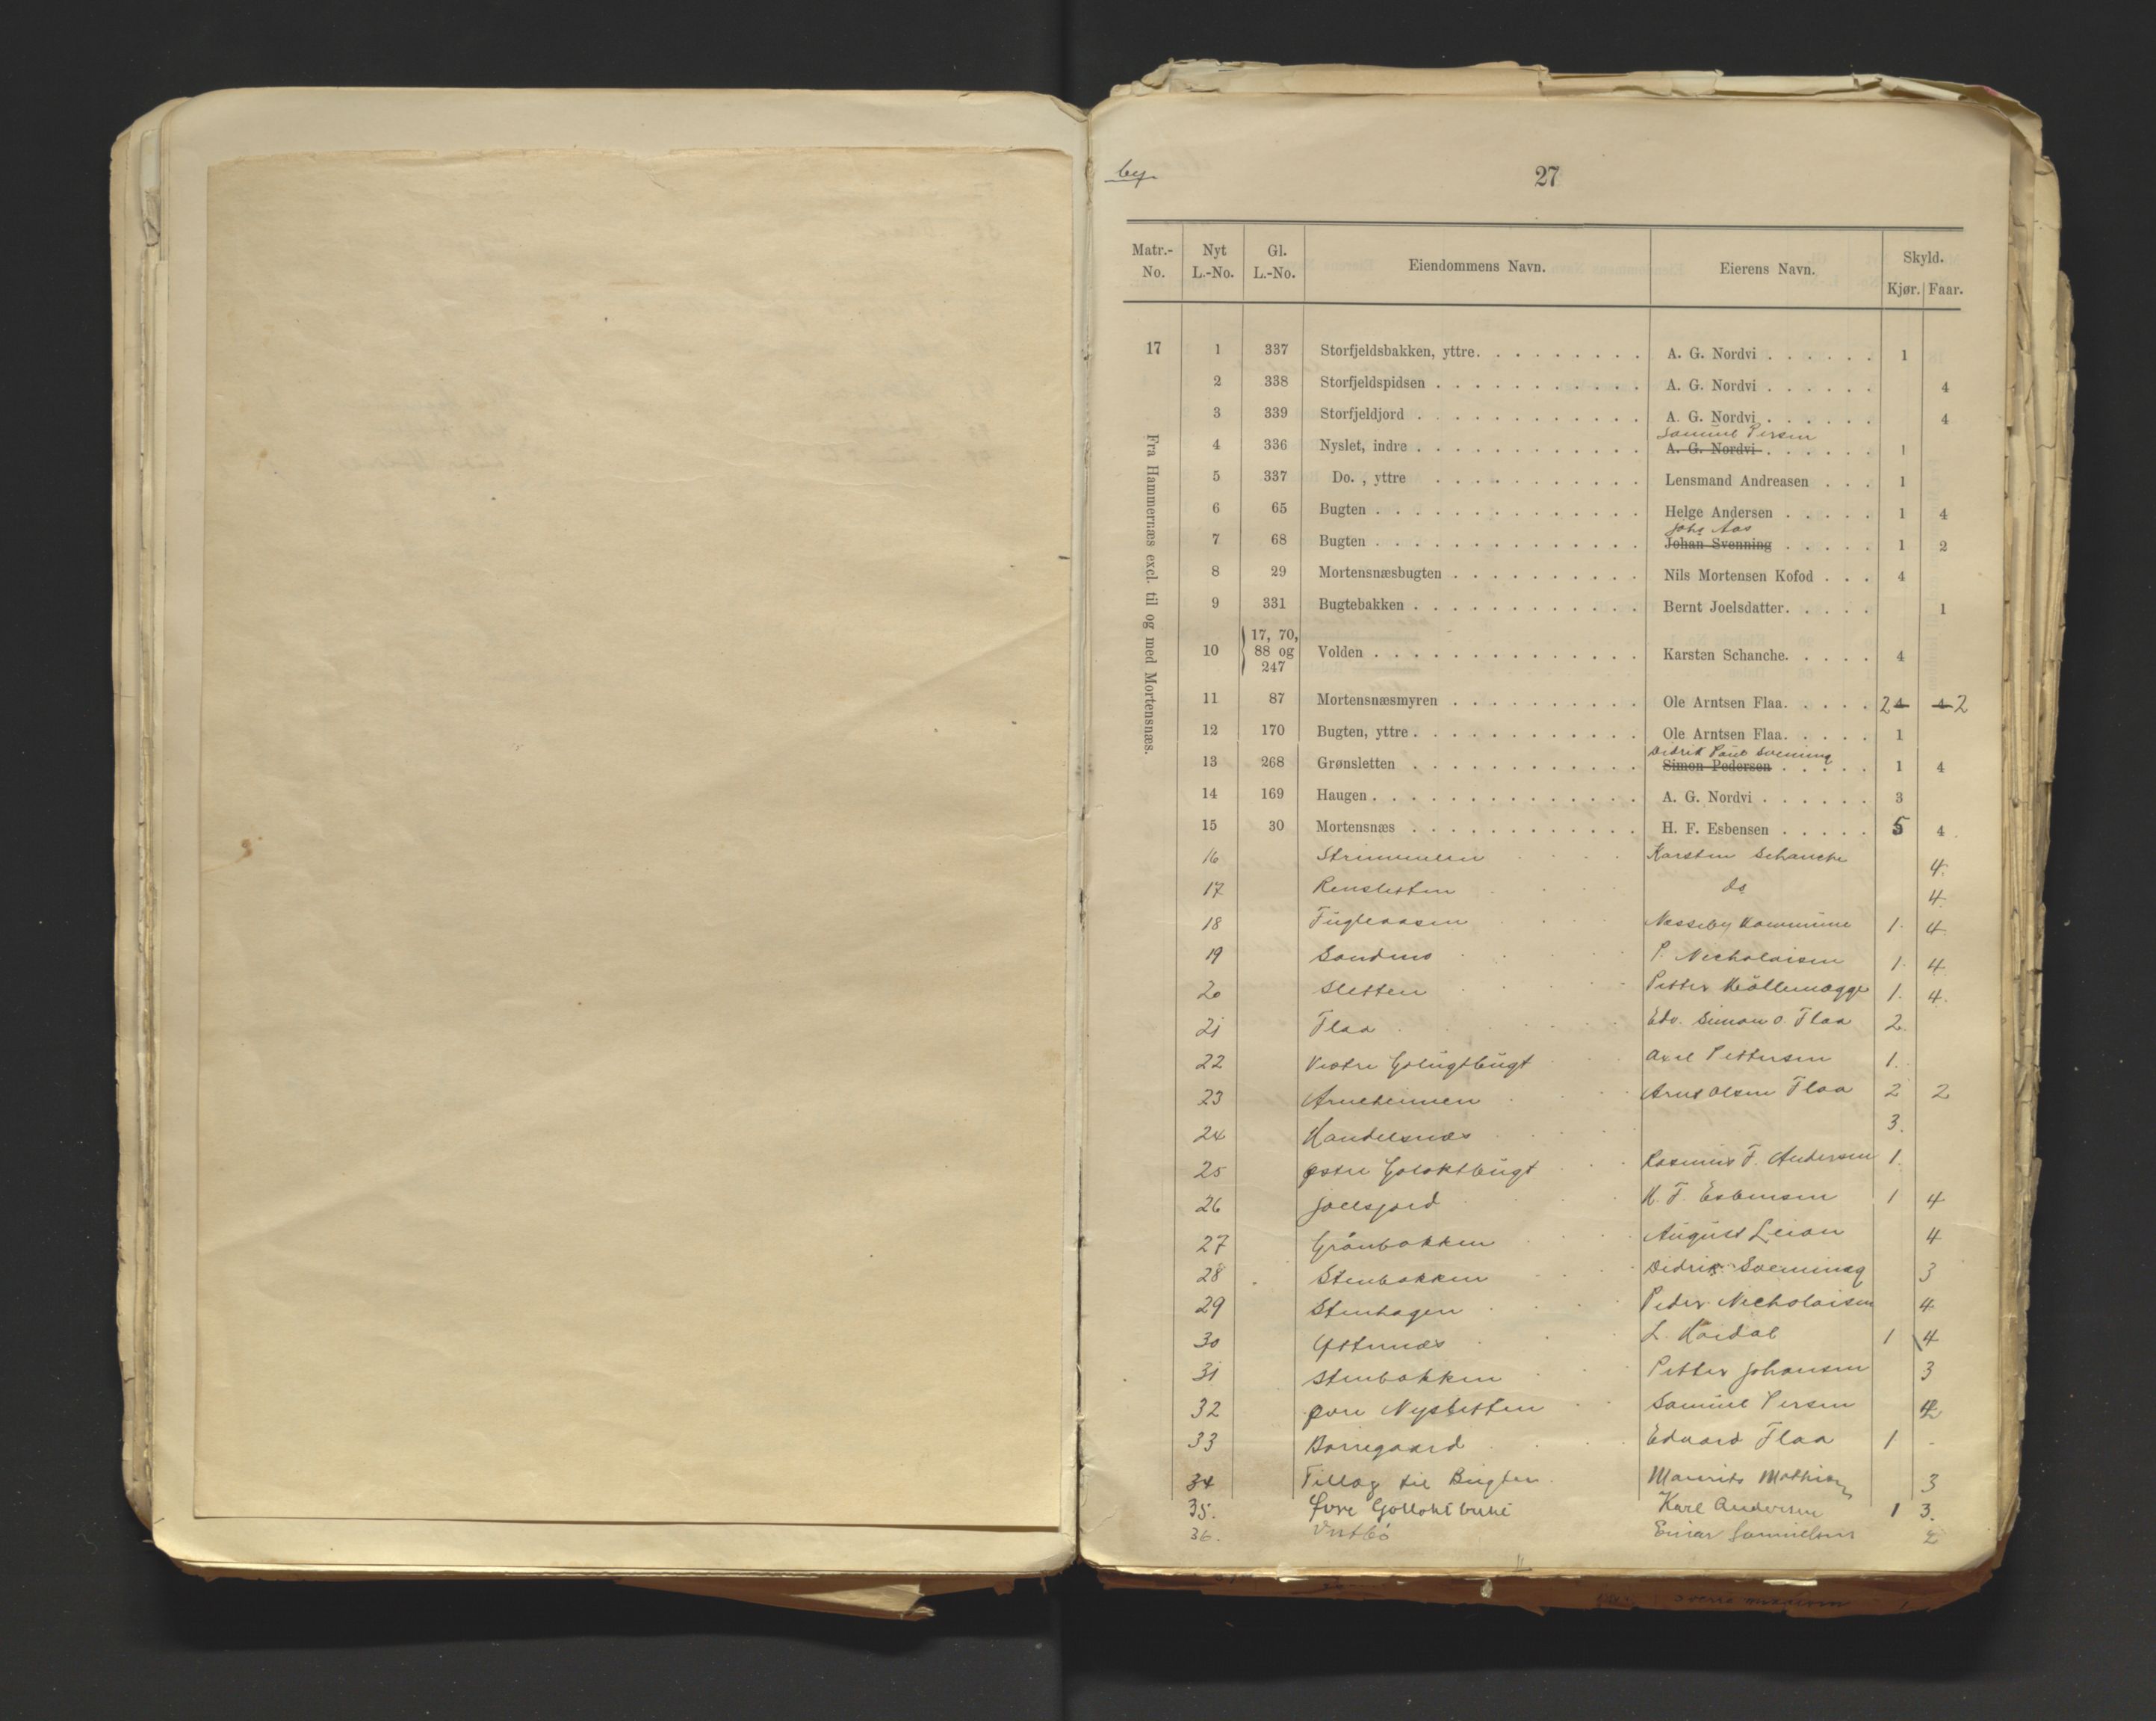 by.
27
Matr.-No. Nyt L.-No. Gl. L.-No. Eiendommens Navn. Eierens Navn. Skyld. Kjør. Faar.
Fra Hammernæs excl. til og med Mortensnæs.
17 1 337 Storfjeldsbakken, yttre. A. G. Nordvi 1
2 338 Storfjeldspidsen A. G. Nordvi 4
3 339 Storfjeldjord A. G. Nordvi 4
Samuel Persen
4 336 Nyslet, indre A. G. Nordvi 1
5 337 Do. , yttre Lensmand Andreasen 1
6 65 Bugten Helge Andersen 1 4
Johs Aas
7 68 Bugten Johan Svenning 1 2
8 29 Mortensnæsbugten Nils Mortensen Kofod 4
9 331 Bugtebakken Bernt Joelsdatter. 1
10 17, 70, 88 og 247 Volden Karsten Schanche. 4
11 87 Mortensnæsmyren Ole Arntsen Flaa. 2 4 4 2
12 170 Bugten, yttre Ole Arntsen Flaa. 1
Didrik Paul Svenning
13 268 Grønsletten Simon Pedersen 1 4
14 169 Haugen A. G. Nordvi 3
15 30 Mortensnæs H. F. Esbensen 5 4
16 Strimmelen Karsten Schanche 4.
17 Rensletten do 4.
18 Fugleaasen Nesseby Kommune 1. 4.
19 Sandmo P. Necholaisen 1. 4.
20 Sletten Petter 1. 4.
21 Flaa Edv. Simon O. Flaa 2.
22 Vestre Axel Pettersen 1.
23 Arneheimen Arnt Olsen Flaa 2 2
24 Handelsnæs 3.
25 Østre Goloktbugt Rasmus F. Andersen 1.
26 Joelsjord H. F. Esbensen 1 4
27 Grönbakken August Leian 4
28 Stenbakken Didrik Svenning 3
29 Stenhagen Peder Necholaisen 4
30 L. Hardal 1 4
31 Stenbakken Petter Johansen 3
32 Øvre Nysletten Samuel Persen
33 Borregaard Edvard Flaa 1
34 Tillæg til Bugten Maurits 3
35. Øvre Karl Andersen 1 3.
36. Vestbö Einar Samuelsen 2